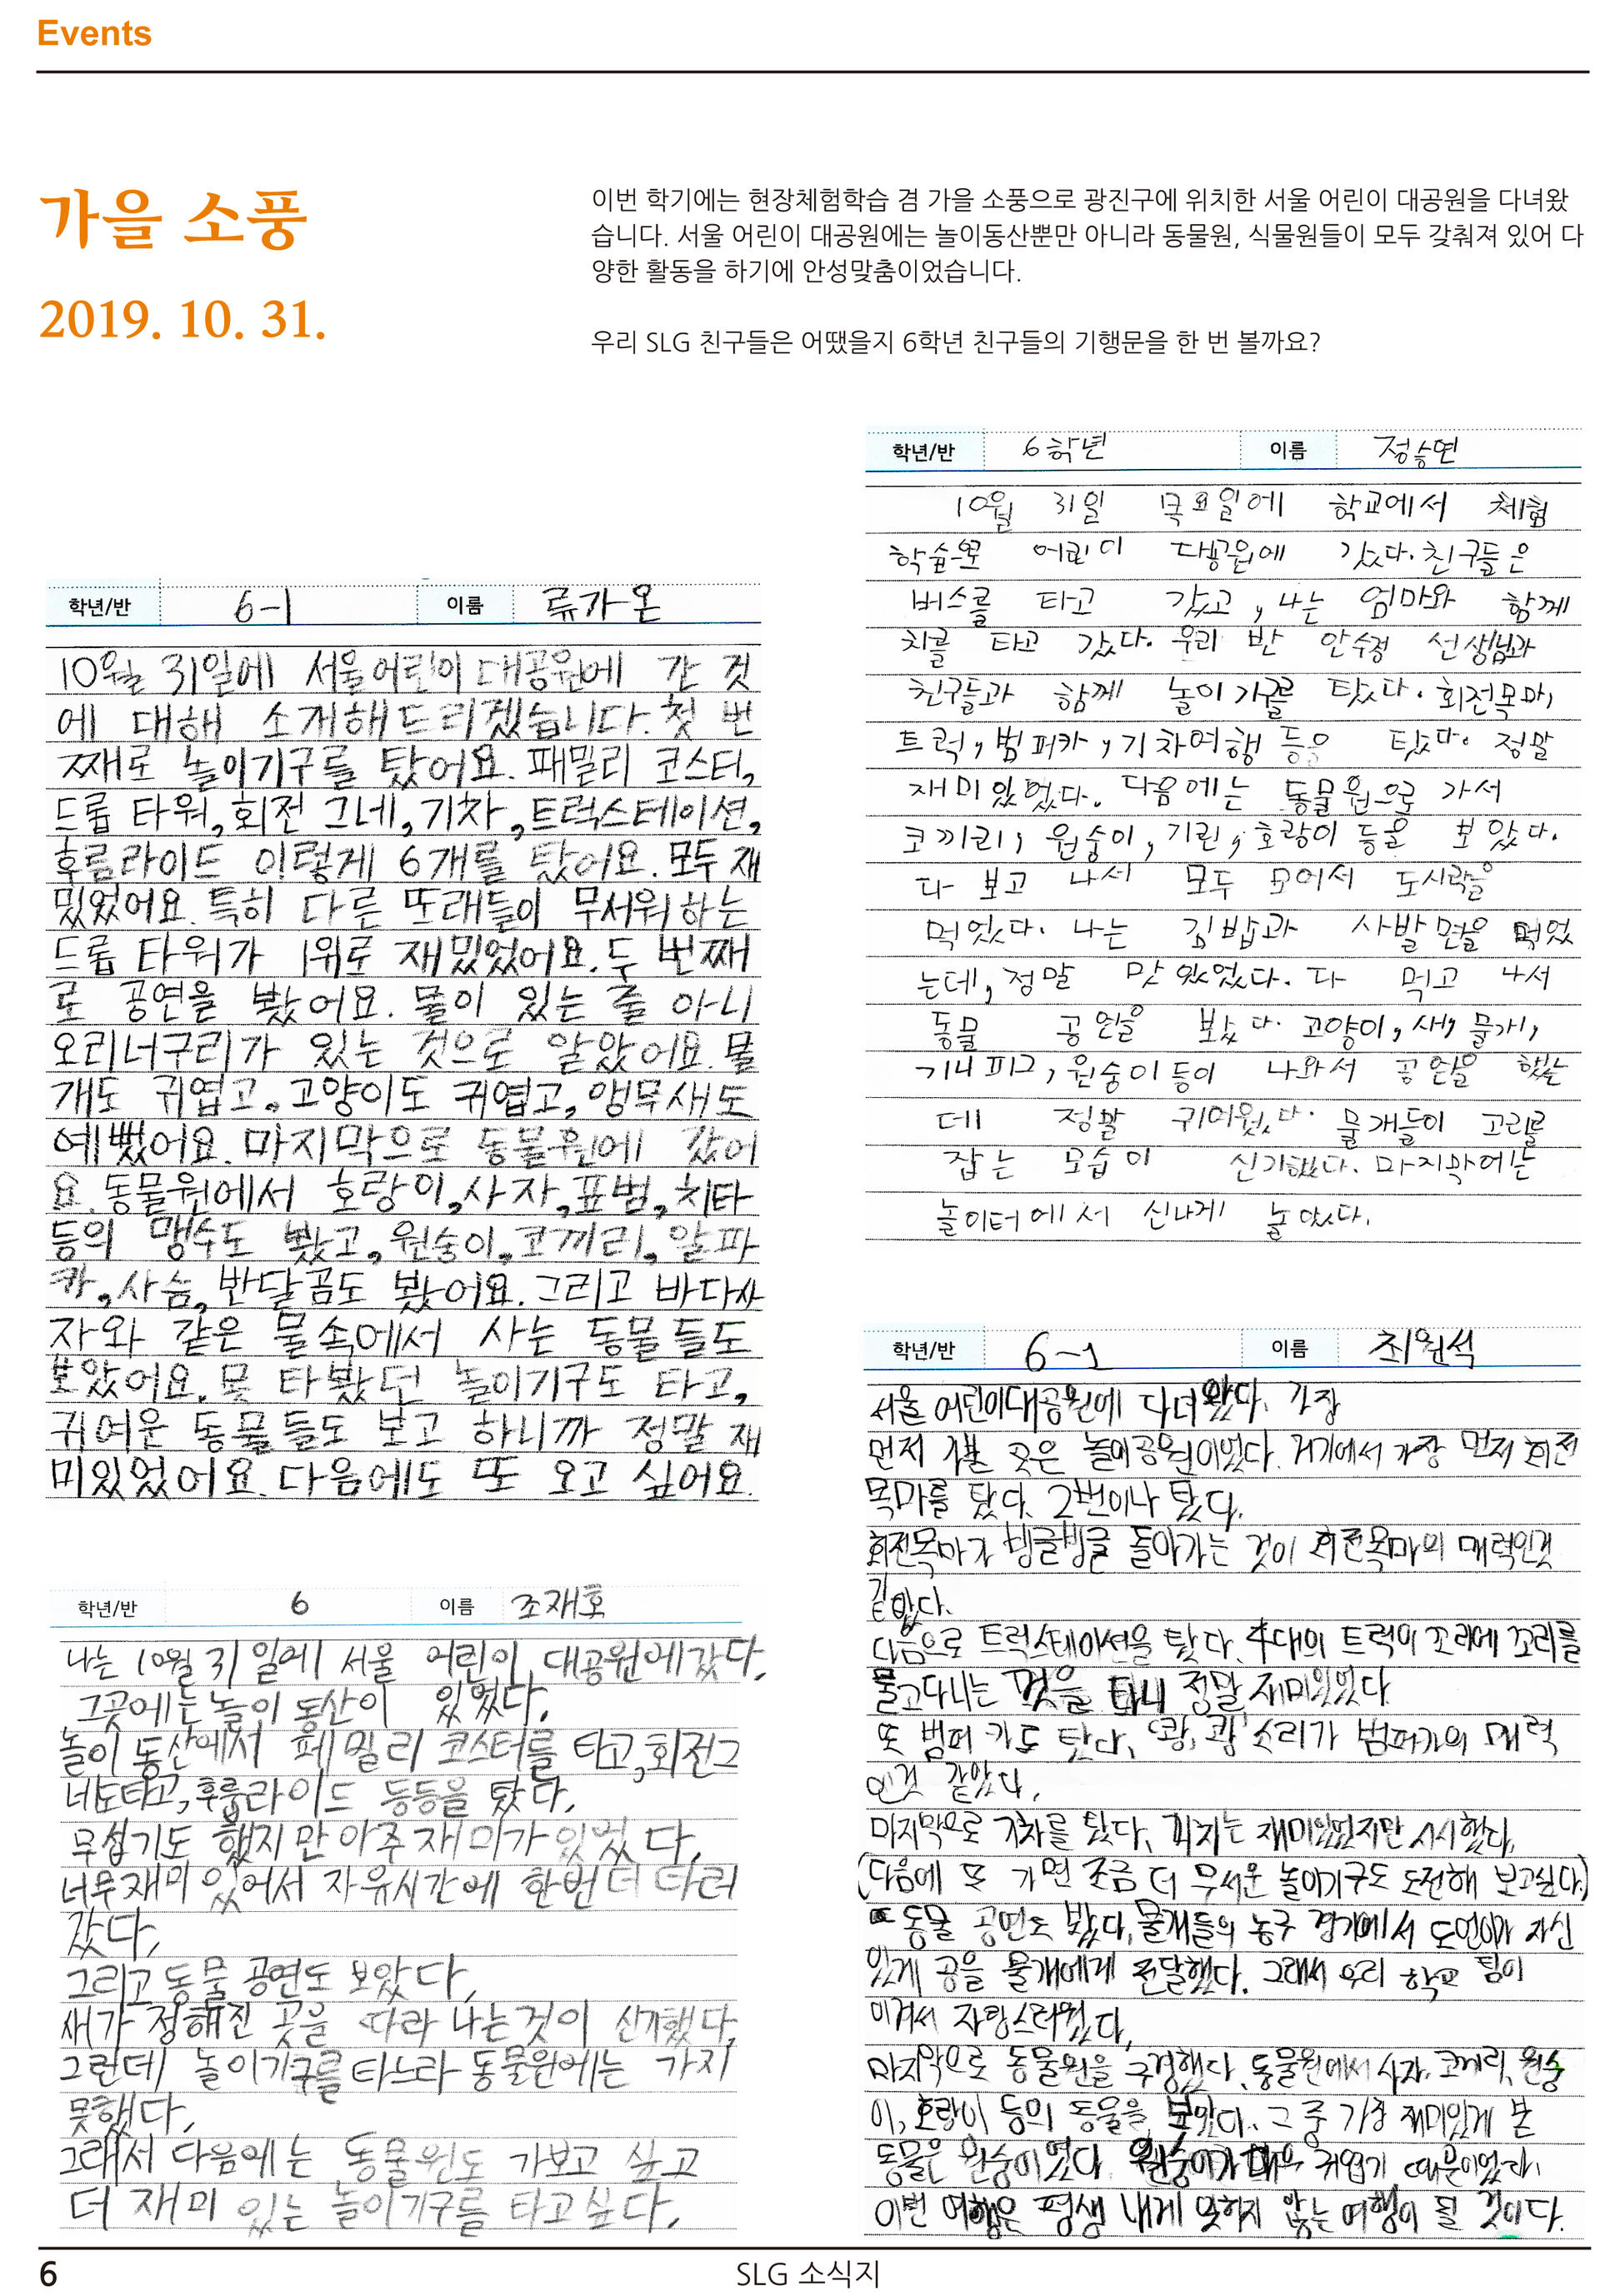 Events
가을 소풍
2019. 10. 31.
이번 학기에는 현장체험학습 겸 가을 소풍으로 광진구에 위치한 서울 어린이 대공원을 다녀왔
습니다. 서울 어린이 대공원에는 놀이동산뿐만 아니라 동물원, 식물원들이 모두 갖춰져 있어 다
양한 활동을 하기에 안성맞춤이었습니다.
우리 SLG 친구들은 어땠을지 6학년 친구들의 기행문을 한 번 볼까요?
학년/반 6-1 이름 류가온
10월 31일에 서울어린이대공원에 간 것
에 대해 소개해드리겠습니다. 첫 번
째로 놀이기구를 탔어요. 패밀리 코스터,
드롭 타워, 회전 그네, 기차, 트럭스테이션,
후룸라이드 이렇게 6개를 탔어요. 모두 재
밌었어요. 특히 다른 또래들이 무서워하는
드롭 타워가 1위로 재밌었어요. 두 번째
로 공연을 봤어요. 물이 있는 줄 아니
오리너구리가 있는 것으로 알았어요. 물
개도 귀엽고, 고양이도 귀엽고, 앵무새도
예뻤어요. 마지막으로 동물원에 갔어
요. 동물원에서 호랑이, 사자, 표범, 치타
등의 맹수도 봤고, 원숭이, 코끼리, 알파
카, 사슴, 반달곰도 봤어요. 그리고 바다사
자와 같은 물속에서 사는 동물들도
보았어요. 못 타봤던 놀이기구도 타고,
귀여운 동물들도 보고 하니까 정말 재
미있었어요. 다음에도 또 오고 싶어요.
학년/반 6 이름 조재호
나는 10월 31일에 서울 어린이 대공원에갔다.
그곳에는 놀이 동산이 있었다.
놀이 동산에서 페밀리 코스터를 타고, 회전그
네도타고, 후룸라이드 등등을 탔다.
무섭기도 했지만 아주 재미가 있었다.
너무재미 있어서 자유시간에 한번더 타러
갔다.
그리고 동물 공연도 보았다.
새가 정해진 곳을 따라 나는것이 신기했다.
그런데 놀이기구를 타느라 동물원에는 가지
못했다.
그래서 다음에는 동물원도 가보고 싶고
더 재미 있는 놀이기구를 타고싶다.
학년/반 6학년 이름 정승연
10월 31일 목요일에 학교에서 체험
학습으로 어린이 대공원에 갔다. 친구들은
버스를 타고 갔고, 나는 엄마와 함께
차를 타고 갔다. 우리 반 안수정 선생님과
친구들과 함께 놀이기구를 탔다. 회전목마,
트럭, 범퍼카, 기차여행 등을 탔다. 정말
재미있었다. 다음에는 동물원으로 가서
코끼리, 원숭이, 기린, 호랑이 등을 보았다.
다 보고 나서 모두 모여서 도시락을
먹었다. 나는 김밥과 사발면을 먹었
는데, 정말 맛있었다. 다 먹고 나서
동물 공연을 봤다. 고양이, 새, 물개,
기니피그, 원숭이 등이 나와서 공연을 했는
데 정말 귀여웠다. 물개들이 고리를
잡는 모습이 신기했다. 마지막에는
놀이터에서 신나게 놀았다.
학년/반 6-1 이름 최원석
서울 어린이대공원에 다녀왔다. 가장
먼저 간 곳은 놀이공원이었다. 거기에서 가장 먼저 회전
목마를 탔다. 2번이나 탔다.
회전목마가 빙글빙글 돌아가는 것이 회전목마의 매력인것
같았다.
다음으로 트럭스테이션을 탔다. 4대의 트럭이 꼬리에 꼬리를
물고다니는 것을 타니 정말 재미있었다
또 범퍼 카도 탔다. '쾅, 쾅' 소리가 범퍼카의 매력
인것 같았다.
마지막으로 기차를 탔다. 기차는 재미있었지만 시시했다.
(다음에 또 가면 조금 더 무서운 놀이기구도 도전해 보고싶다.)
또 동물 공연도 봤다. 물개들의 농구 경기에서 도연이가 자신
있게 공을 물개에게 전달했다. 그래서 우리 학교 팀이
이겨서 자랑스러웠다.
마지막으로 동물원을 구경했다. 동물원에서 사자, 코끼리, 원숭
이, 호랑이 등의 동물을 보았다. 그 중 가장 재미있게 본
동물은 원숭이였다. 원숭이가 매우 귀엽기 때문이었다.
이번 여행은 평생 내게 잊혀지 않는 여행이 될 것이다.
6
SLG 소식지